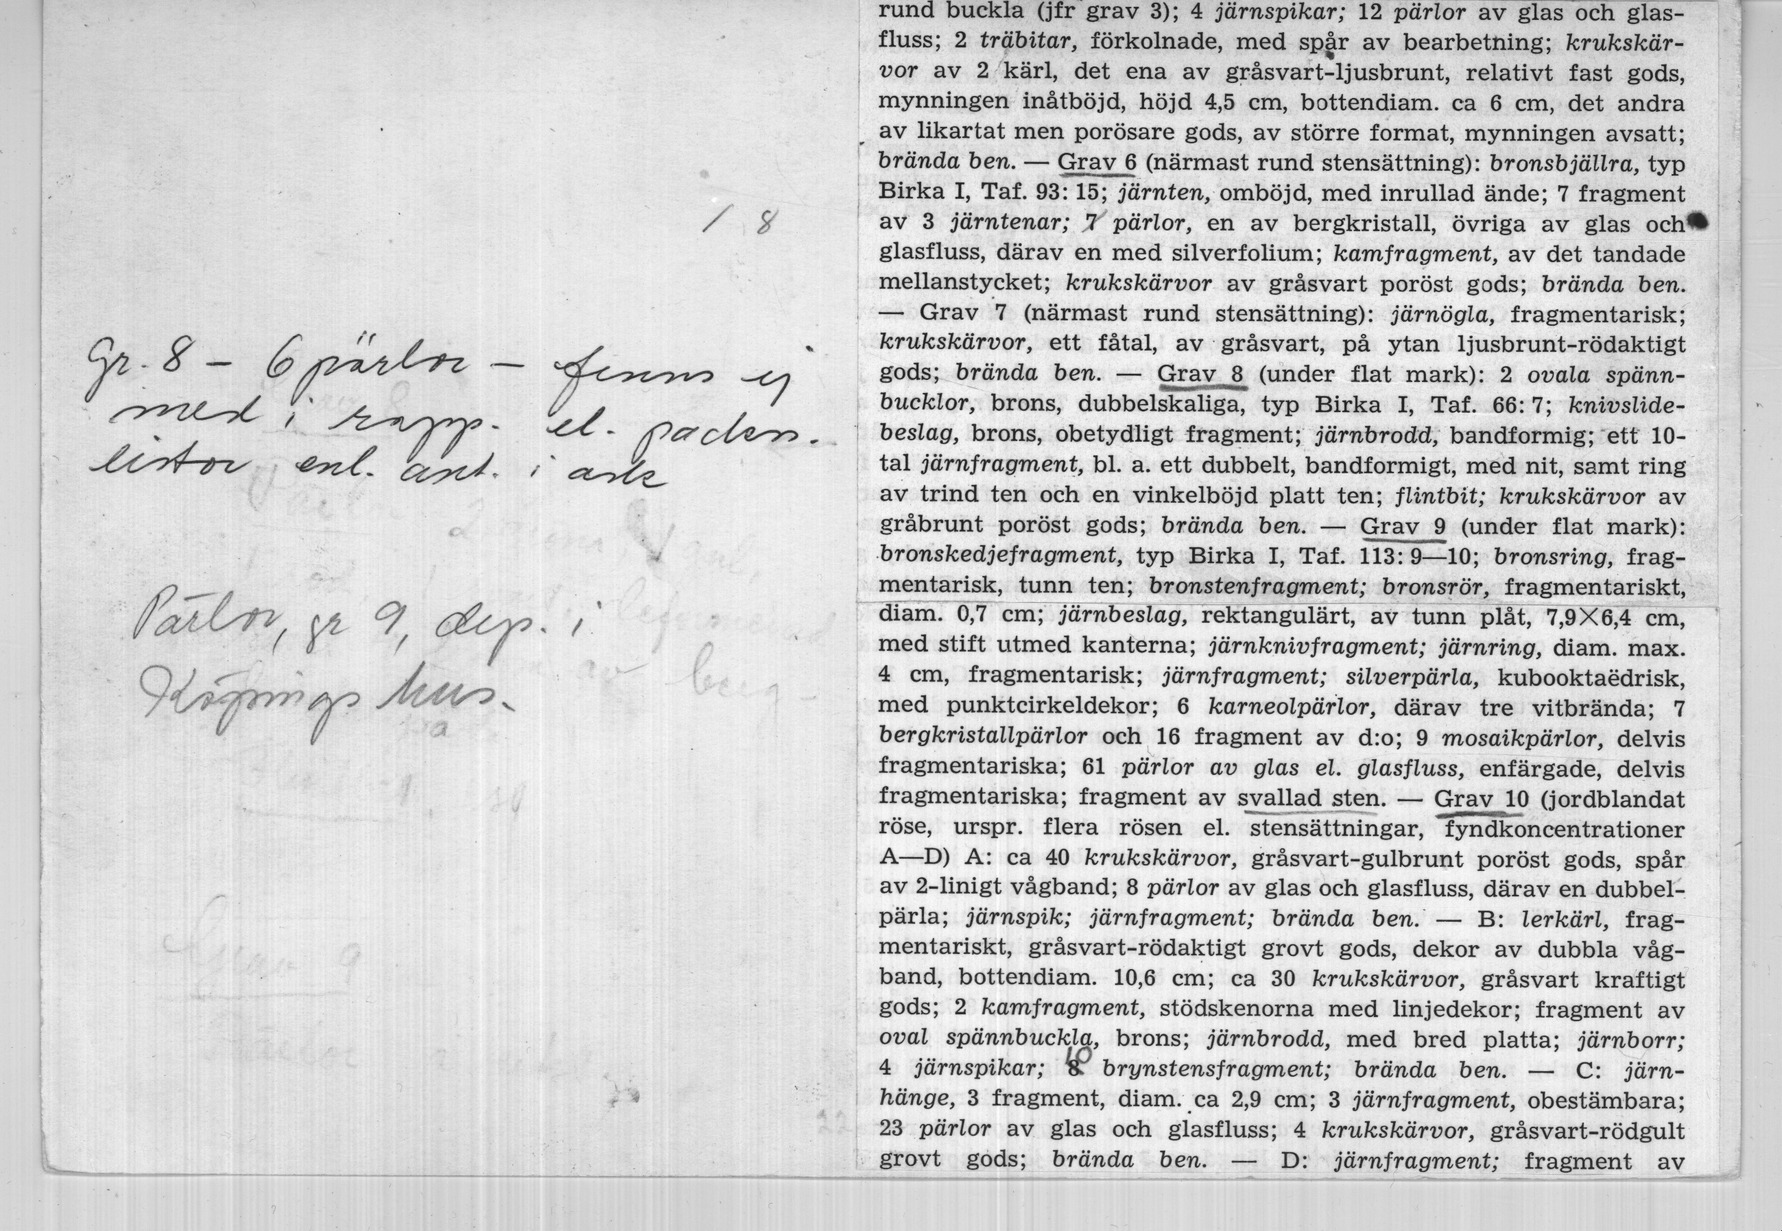 1 8
Gr. 8 – 6 pärlor – finns ej
med i rapp. el. packn.
listor enl. ant. i ask
Pärlor, gr 9, dep. i
Köpings hus.
rund buckla (jfr grav 3); 4 järnspikar; 12 pärlor av glas och glas-
fluss; 2 träbitar, förkolnade, med spår av bearbetning; krukskär-
vor av 2 kärl, det ena av gråsvart-ljusbrunt, relativt fast gods,
mynningen inåtböjd, höjd 4,5 cm, bottendiam. ca 6 cm, det andra
av likartat men porösare gods, av större format, mynningen avsatt;
brända ben. — Grav 6 (närmast rund stensättning): bronsbjällra, typ
Birka I, Taf. 93: 15; järnten, omböjd, med inrullad ände; 7 fragment
av 3 järntenar; 7 pärlor, en av bergkristall, övriga av glas och
glasfluss, därav en med silverfolium; kamfragment, av det tandade
mellanstycket; krukskärvor av gråsvart poröst gods; brända ben.
— Grav 7 (närmast rund stensättning): järnögla, fragmentarisk;
krukskärvor, ett fåtal, av gråsvart, på ytan ljusbrunt-rödaktigt
gods; brända ben. — Grav 8 (under flat mark): 2 ovala spänn-
bucklor, brons, dubbelskaliga, typ Birka I, Taf. 66: 7; knivslide-
beslag, brons, obetydligt fragment; järnbrodd, bandformig; ett 10-
tal järnfragment, bl. a. ett dubbelt, bandformigt, med nit, samt ring
av trind ten och en vinkelböjd platt ten; flintbit; krukskärvor av
gråbrunt poröst gods; brända ben. — Grav 9 (under flat mark):
bronskedjefragment, typ Birka I, Taf. 113: 9—10; bronsring, frag-
mentarisk, tunn ten; bronstenfragment; bronsrör, fragmentariskt,
diam. 0,7 cm; järnbeslag, rektangulärt, av tunn plåt, 7,9×6,4 cm,
med stift utmed kanterna; järnknivfragment; järnring, diam. max.
4 cm, fragmentarisk; järnfragment; silverpärla, kubooktaëdrisk,
med punktcirkeldekor; 6 karneolpärlor, därav tre vitbrända; 7
bergkristallpärlor och 16 fragment av d:o; 9 mosaikpärlor, delvis
fragmentariska; 61 pärlor av glas el. glasfluss, enfärgade, delvis
fragmentariska; fragment av svallad sten. — Grav 10 (jordblandat
röse, urspr. flera rösen el. stensättningar, fyndkoncentrationer
A—D) A: ca 40 krukskärvor, gråsvart-gulbrunt poröst gods, spår
av 2-linigt vågband; 8 pärlor av glas och glasfluss, därav en dubbel-
pärla; järnspik; järnfragment; brända ben. — B: lerkärl, frag-
mentariskt, gråsvart-rödaktigt grovt gods, dekor av dubbla våg-
band, bottendiam. 10,6 cm; ca 30 krukskärvor, gråsvart kraftigt
gods; 2 kamfragment, stödskenorna med linjedekor; fragment av
oval spännbuckla, brons; järnbrodd, med bred platta; järnborr;
10
4 järnspikar; 8 brynstensfragment; brända ben. — C: järn-
hänge, 3 fragment, diam. ca 2,9 cm; 3 järnfragment, obestämbara;
23 pärlor av glas och glasfluss; 4 krukskärvor, gråsvart-rödgult
grovt gods; brända ben. — D: järnfragment; fragment av